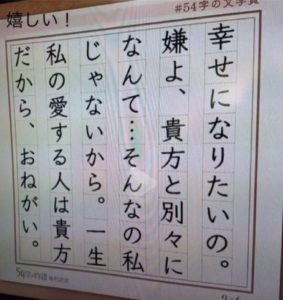 嬉しい！
#54字の文学賞
幸せになりたいの。
嫌よ、貴方と別々に
なんて…そんなの私
じゃないから。一生
私の愛する人は貴方
だから、おねがい。
54字の物語